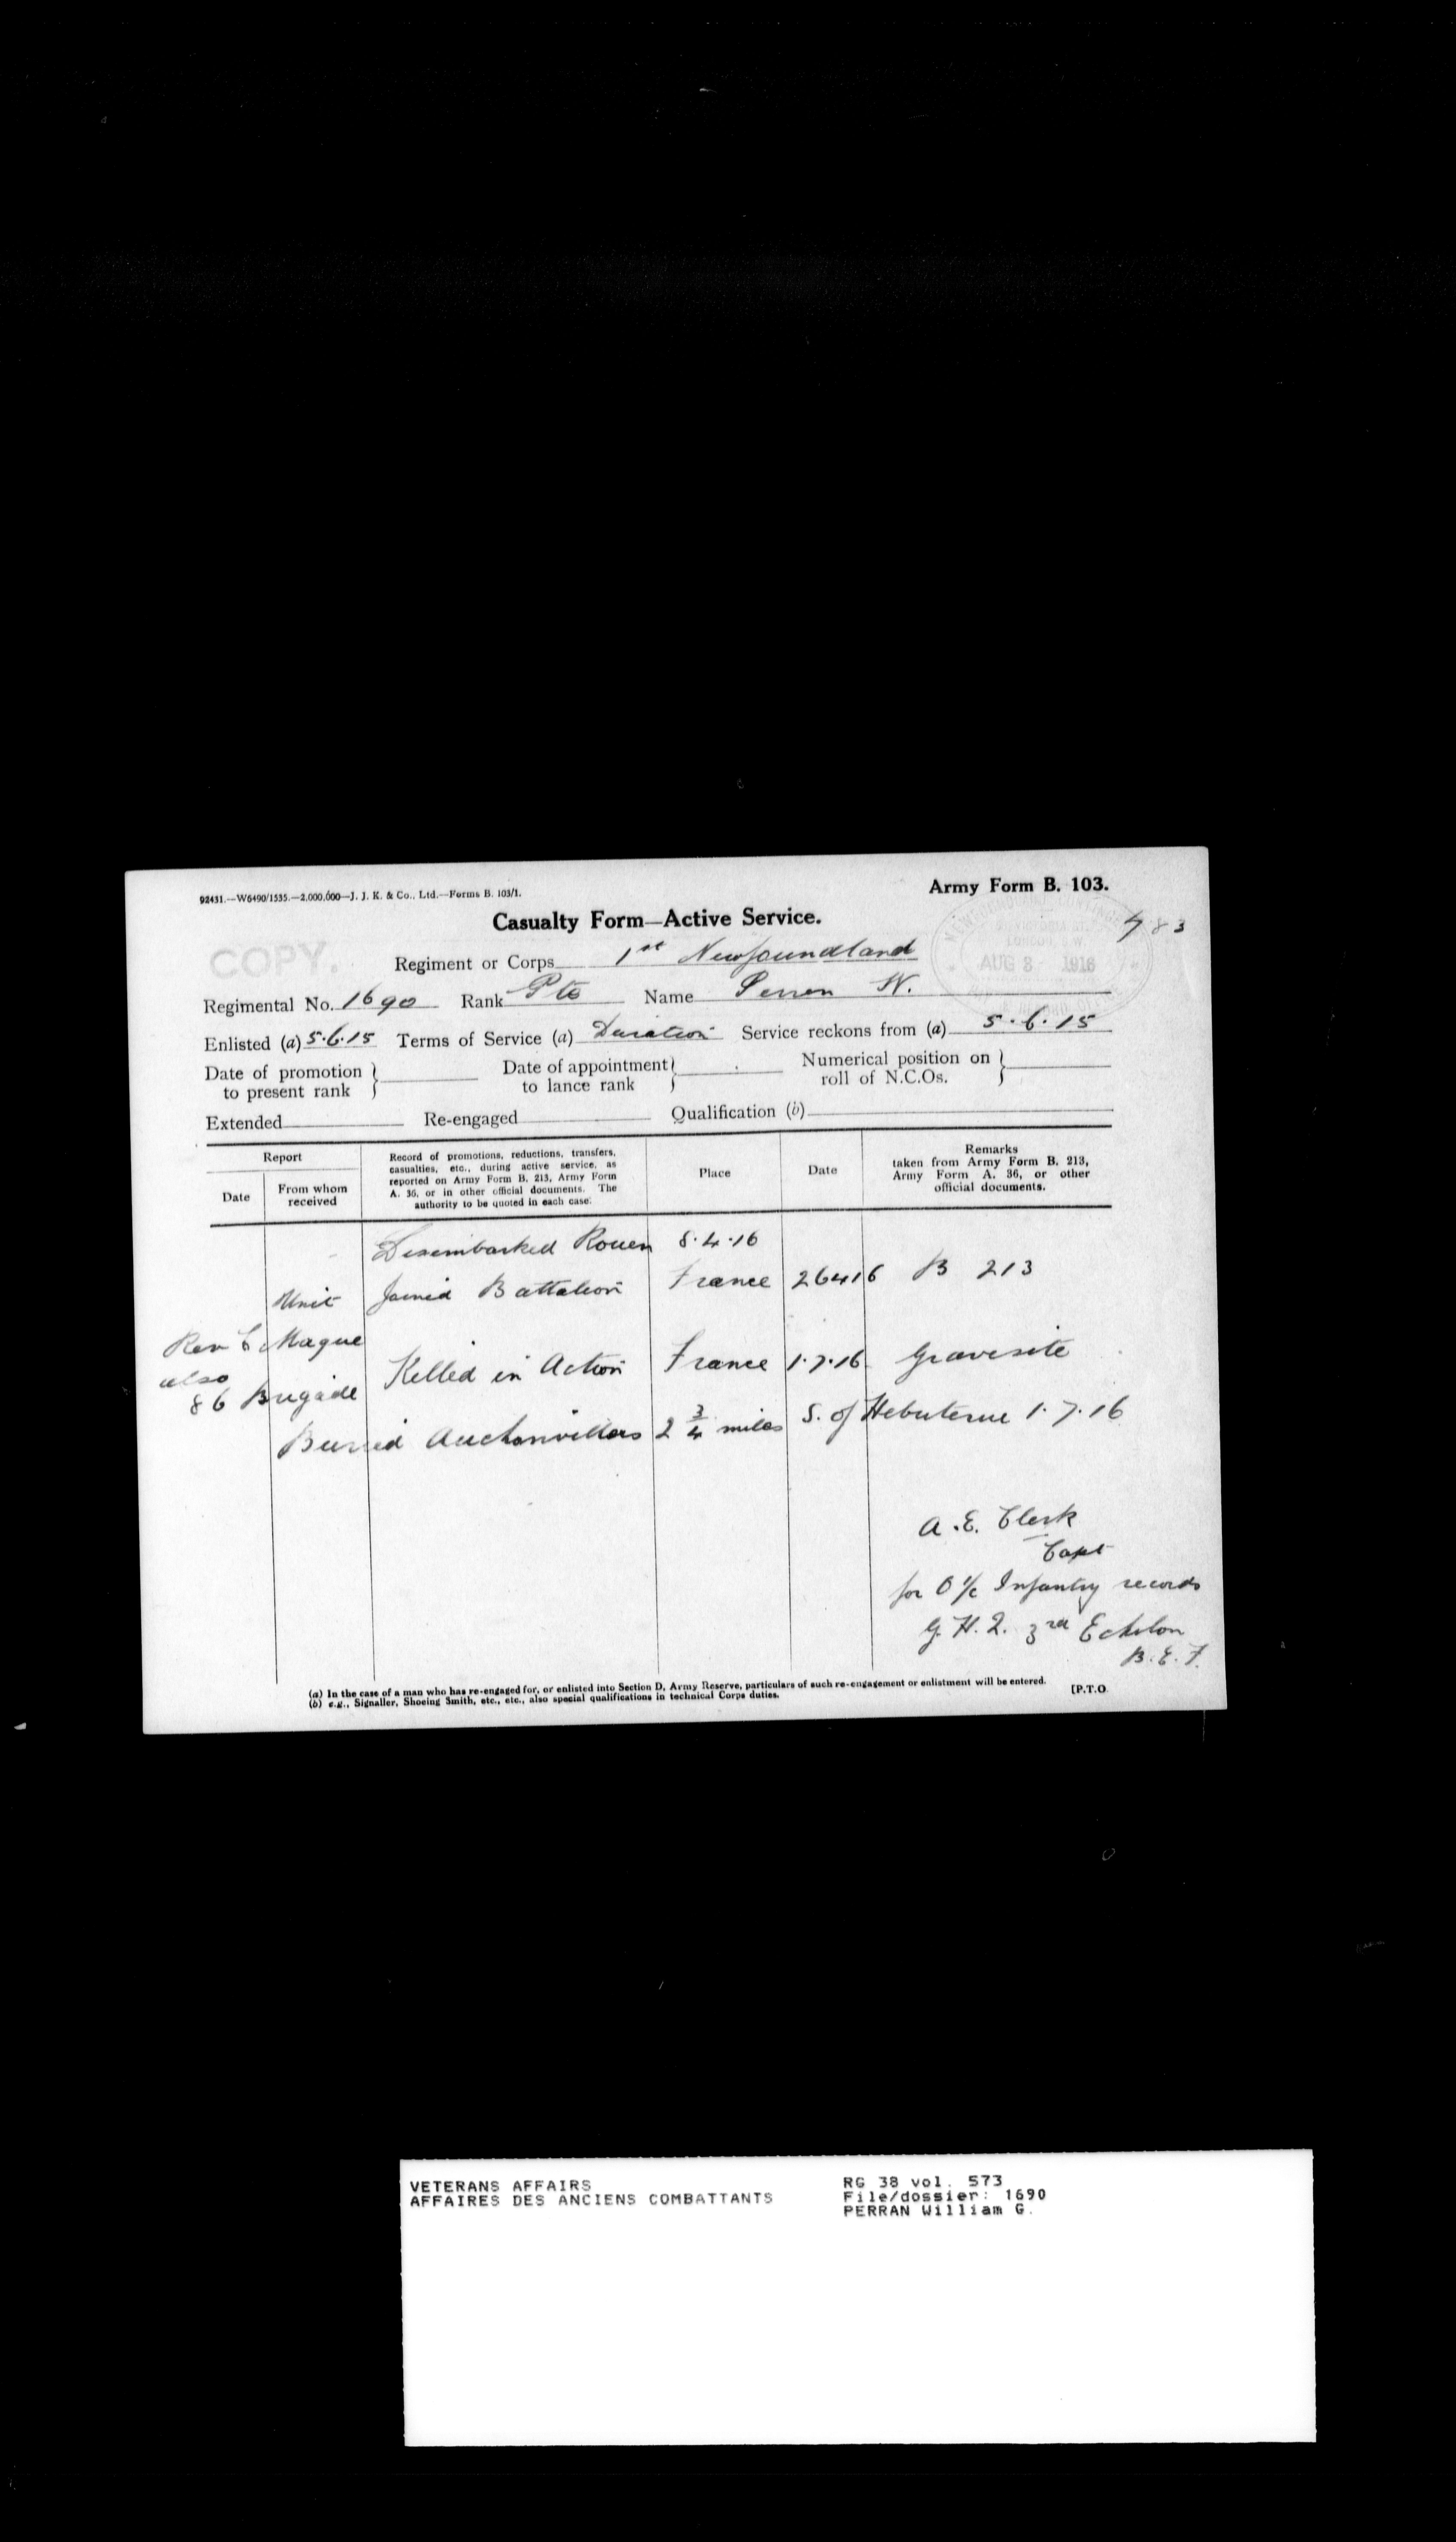 92431.—W6490/1535.—2,000,000—J. J. K. & Co., Ltd.—Forms B. 103/1.
Army Form B. 103.
Casualty Form—Active Service.
COPY.
AUG 8 1916
Regiment or Corps 1st Newfoundland
Regimental No. 1690 Rank Pte Name Perren W.
Enlisted (a) 5.6.15 Terms of Service (a) Duration Service reckons from (a) 5.6.15
Date of promotion to present rank
Date of appointment to lance rank
Numerical position on roll of N.C.Os.
Extended Re-engaged Qualification (b)
Report
Date
From whom received
Record of promotions, reductions, transfers, casualties, etc., during active service, as reported on Army Form B. 213, Army Form A. 36, or in other official documents. The authority to be quoted in each case.
Place
Date
Remarks taken from Army Form B. 213, Army Form A. 36, or other official documents.
Disembarked Rouen 8.4.16
Unit Joined Battalion France 26416 B 213
Rev C Mague
also
86 Brigade Killed in Action France 1.7.16 Gravesite
Buried Auchonvillers 2 3/4 miles S. of Hebuterne 1.7.16
A.E. Clerk
Capt
for O i/c Infantry records
G.H.Q. 3rd Echelon
B.E.F.
(a) In the case of a man who has re-engaged for, or enlisted into Section D, Army Reserve, particulars of such re-engagement or enlistment will be entered.
(b) e.g., Signaller, Shoeing Smith, etc., etc., also special qualifications in technical Corps duties.
[P.T.O.
VETERANS AFFAIRS
AFFAIRES DES ANCIENS COMBATTANTS
RG 38 vol. 573
File/dossier: 1690
PERRAN William G.